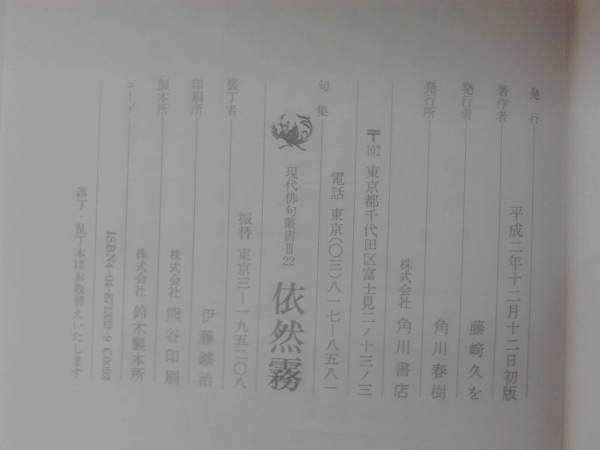 発行 平成二年十二月十二日初版
著作者 藤﨑久を
発行者 角川春樹
発行所 株式会社 角川書店
〒102 東京都千代田区富士見二ノ十三ノ三
電話 東京(〇三)八一七―八五八一
振替 東京三―一九五二〇八
句集 現代俳句叢書Ⅲ22 依然霧
装丁者 伊藤鑛治
印刷所 株式会社 熊谷印刷
製本所 株式会社 鈴木製本所
コード ISBN4-04-
落丁・乱丁本はお取替えいたします